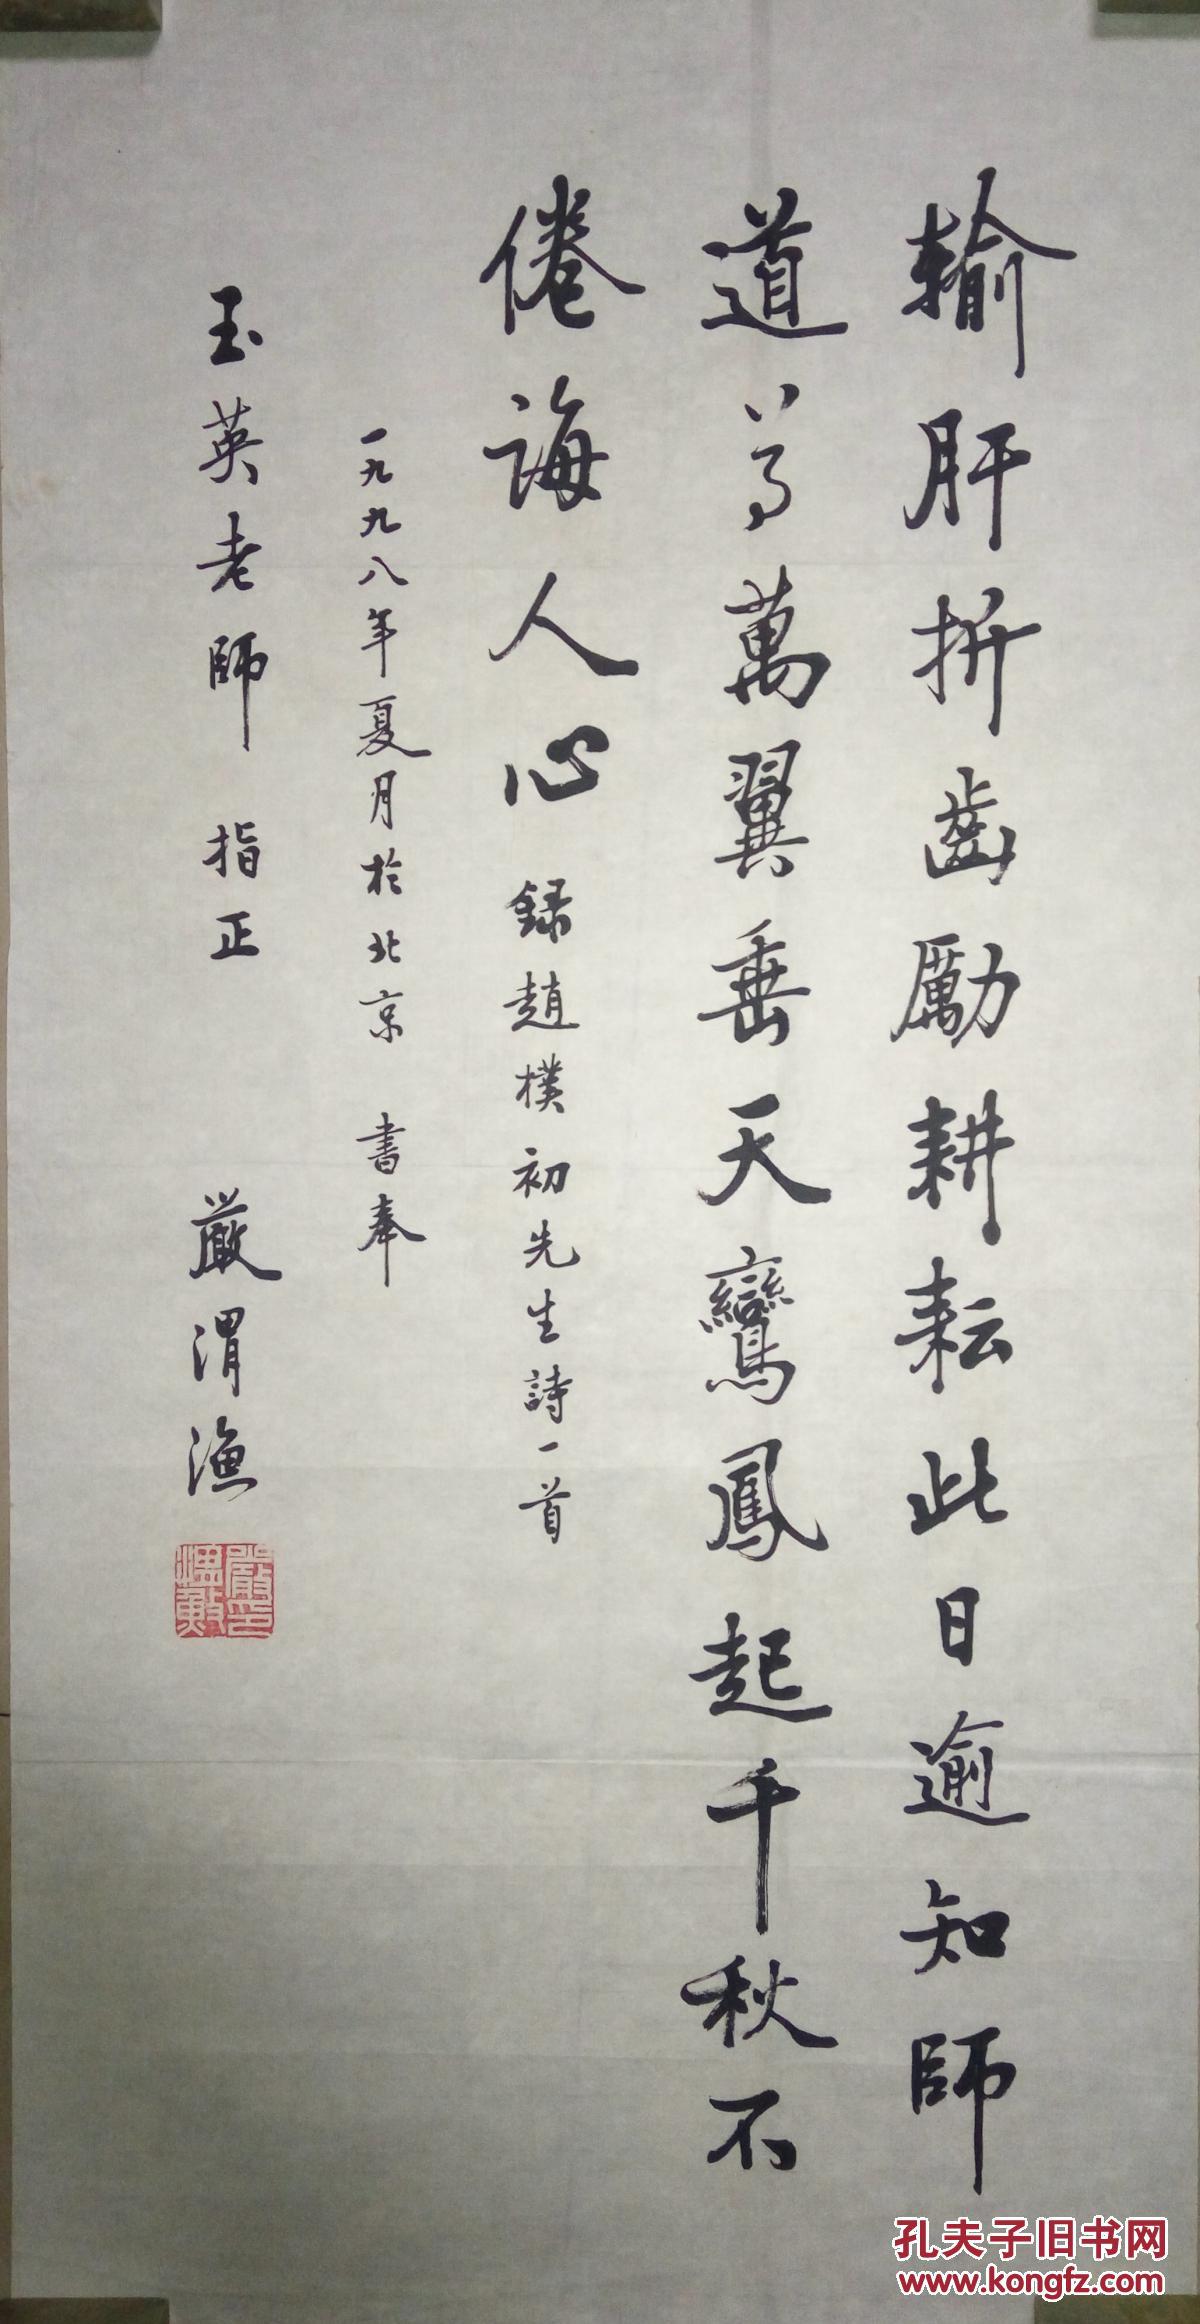 輸肝折齒勵耕耘此日逾知師
道尊萬翼垂天鸞鳳起千秋不
倦誨人心 録趙樸初先生詩一首
一九九八年夏月於北京 書奉
玉英老師 指正 嚴渭漁
孔夫子旧书网
www.kongfz.com